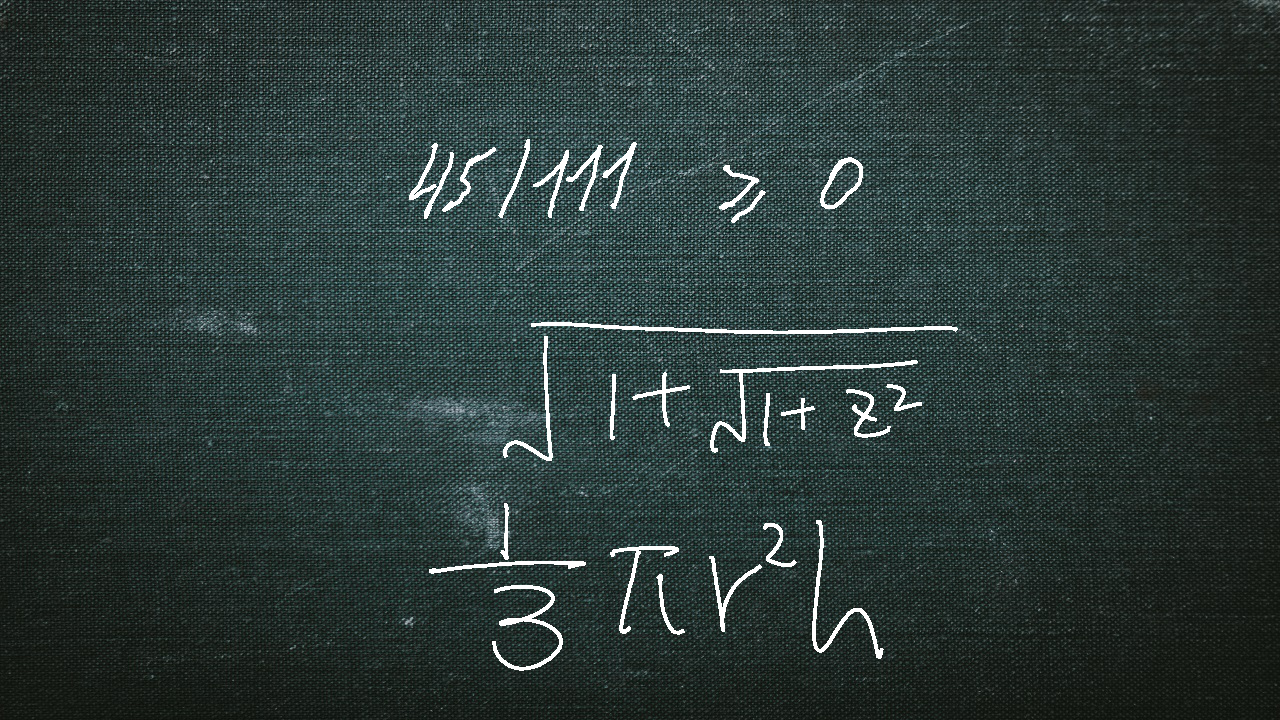 45/111 ⩾ 0
\sqrt{1+\sqrt{1+z^2}}
\frac{1}{3}πr^2h